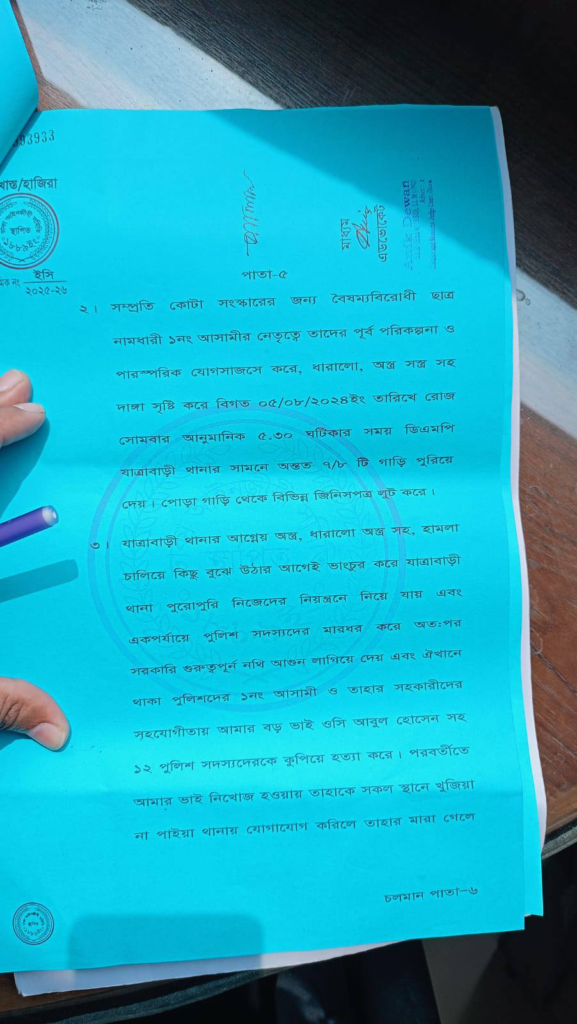 93933
হাজিরা
স্থাপিত
১৮৮৯ইং
নং ইসি
২০২৫-২৬
মাধ্যম
এডভোকেট
Dewan
পাতা-৫
২। সম্প্রতি কোটা সংস্কারের জন্য বৈষম্যবিরোধী ছাত্র
নামধারী ১নং আসামীর নেতৃত্বে তাদের পূর্ব পরিকল্পনা ও
পারস্পরিক যোগসাজসে করে, ধারালো, অস্ত্র সস্ত্র সহ
দাঙ্গা সৃষ্টি করে বিগত ০৫/০৮/২০২৪ইং তারিখে রোজ
সোমবার আনুমানিক ৫.৩০ ঘটিকার সময় ডিএমপি
যাত্রাবাড়ী থানার সামনে অন্তত ৭/৮ টি গাড়ি পুরিয়ে
দেয়। পোড়া গাড়ি থেকে বিভিন্ন জিনিসপত্র লুট করে।
৩। যাত্রাবাড়ী থানার আগ্নেয় অস্ত্র, ধারালো অস্ত্র সহ, হামলা
চালিয়ে কিছু বুঝে উঠার আগেই ভাংচুর করে যাত্রাবাড়ী
থানা পুরোপুরি নিজেদের নিয়ন্ত্রনে নিয়ে যায় এবং
একপর্যায়ে পুলিশ সদস্যদের মারধর করে অতঃপর
সরকারি গুরুত্বপূর্ন নথি আগুন লাগিয়ে দেয় এবং ঐখানে
থাকা পুলিশদের ১নং আসামী ও তাহার সহকারীদের
সহযোগীতায় আমার বড় ভাই ওসি আবুল হোসেন সহ
১২ পুলিশ সদস্যদেরকে কুপিয়ে হত্যা করে। পরবর্তীতে
আমার ভাই নিখোজ হওয়ায় তাহাকে সকল স্থানে খুজিয়া
না পাইয়া থানায় যোগাযোগ করিলে তাহার মারা গেলে
চলমান পাতা-৬